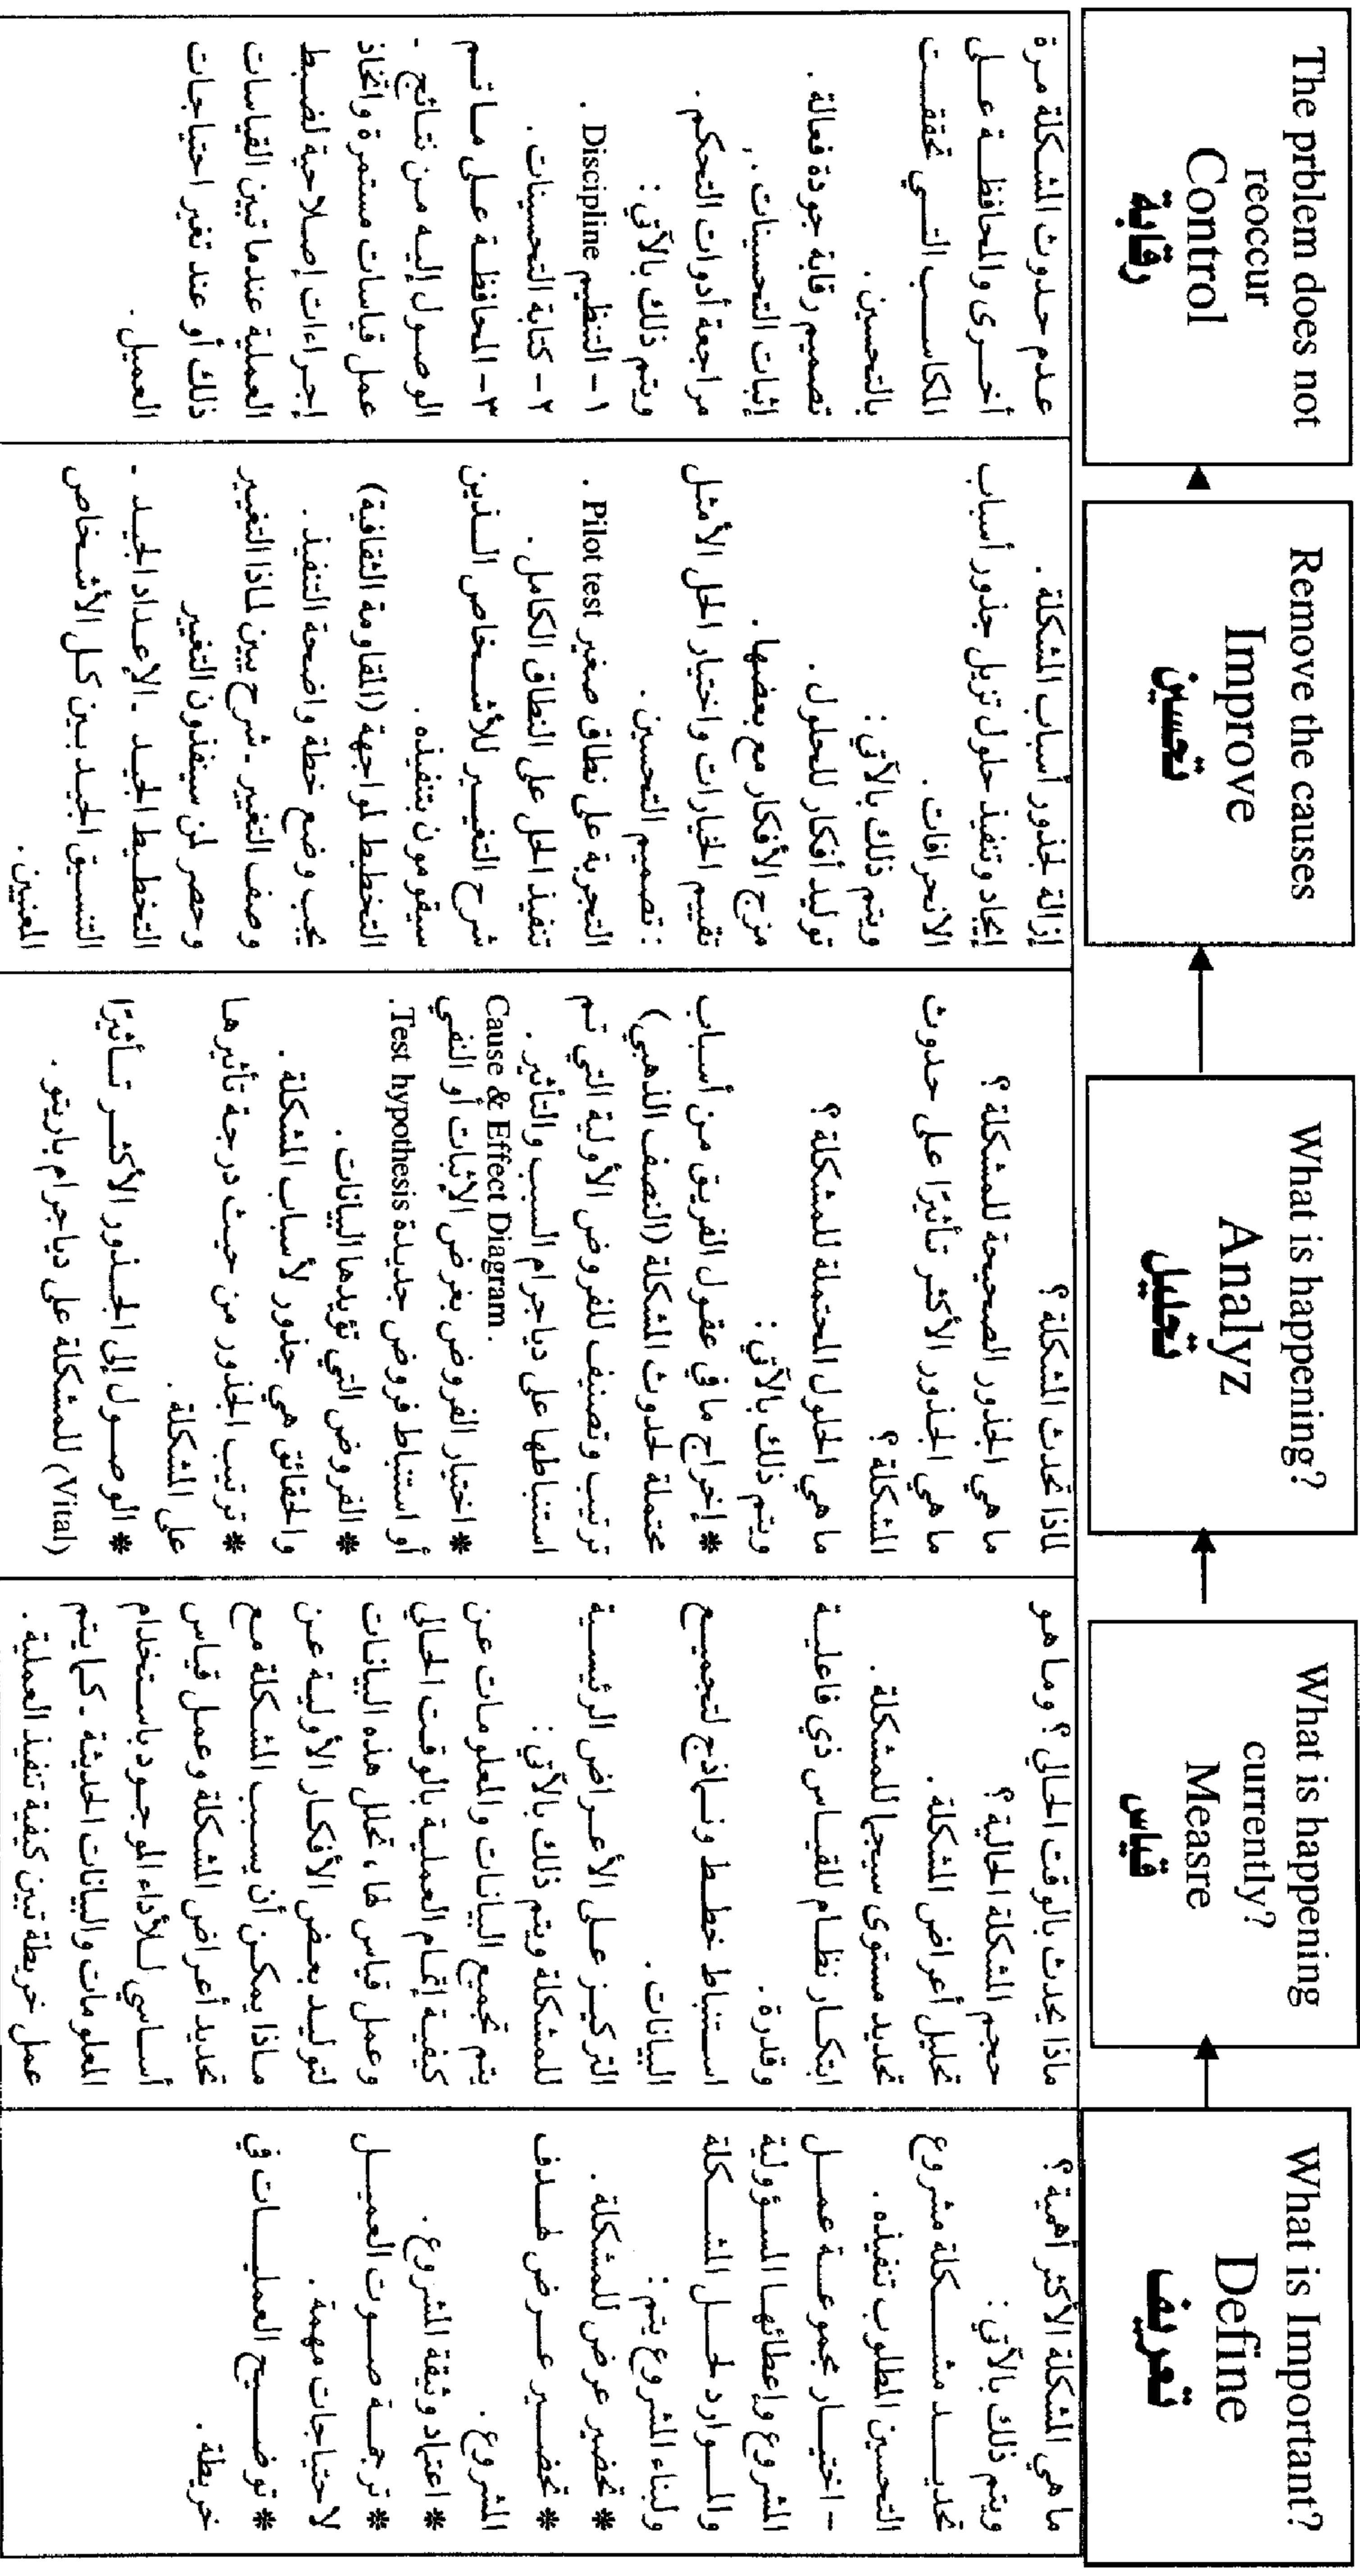 What is Important?
Define
تعريف
ما هي المشكلة الأكثر أهمية ؟
ويتم ذلك بالآتي :
تحديد مشكلة مشروع
التحسين المطلوب تنفيذه .
- اختيار مجموعة عمل
المشروع وإعطائها المسؤولية
والموارد لحل المشكلة
ولبناء المشروع يتم :
* تحضير عرض للمشكلة .
* تحضير عرض لهدف
المشروع .
* اعتماد وثيقة المشروع .
* ترجمة صوت العميل
لاحتياجات مهمة .
* توضيح العمليات في
خريطة .
What is happening
currently?
Measre
قياس
ماذا يحدث بالوقت الحالي ؟ وما هو
حجم المشكلة الحالية ؟
تحليل أعراض المشكلة .
تحديد مستوى سيجما للمشكلة .
ابتكار نظام للقياس ذي فاعلية
وقدرة .
استنباط خطط ونماذج لتجميع
البيانات .
التركيز على الأعراض الرئيسية
للمشكلة ويتم ذلك بالآتي :
يتم تجميع البيانات والمعلومات عن
كيفية إتمام العملية بالوقت الحالي
وعمل قياس لها ، تحلل هذه البيانات
لتوليد بعض الأفكار الأولية عن
ماذا يمكن أن يسبب المشكلة مع
تحديد أعراض المشكلة وعمل قياس
أساسي للأداء الموجود باستخدام
المعلومات والبيانات الحديثة - كما يتم
عمل خريطة تبين كيفية تنفيذ العملية .
What is happening?
Analyz
تحليل
لماذا تحدث المشكلة ؟
ما هي الجذور الصحيحة للمشكلة ؟
ما هي الجذور الأكثر تأثيرًا على حدوث
المشكلة ؟
ما هي الحلول المحتملة للمشكلة ؟
ويتم ذلك بالآتي :
* إخراج ما في عقول الفريق من أسباب
محتملة لحدوث المشكلة (النصف الذهبي)
ترتيب وتصنيف للفروض الأولية التي تم
استنباطها على دياجرام السبب والتأثير .
Cause & Effect Diagram .
* اختبار الفروض بغرض الإثبات أو النفي
أو استنباط فروض جديدة Test hypothesis.
* الفروض التي تؤيدها البيانات .
والحقائق هي جذور لأسباب المشكلة .
* ترتيب الجذور من حيث درجة تأثيرها
على المشكلة .
* الوصول إلى الجذور الأكثر تأثيرًا
(Vital) للمشكلة على دياجرام باريتو .
Remove the causes
Improve
تحسين
إزالة لجذور أسباب المشكلة .
إيجاد وتنفيذ حلول تزيل جذور أسباب
الانحرافات .
ويتم ذلك بالآتي :
توليد أفكار للحلول .
مزج الأفكار مع بعضها .
تقييم الخيارات واختيار الحل الأمثل
: تصميم التحسين .
التجربة على نطاق صغير Pilot test .
تنفيذ الحل على النطاق الكامل .
شرح التغيير للأشخاص الذين
سيقومون بتنفيذه .
التخطيط لمواجهة (المقاومة الثقافية)
يجب وضع خطة واضحة التنفيذ .
وصف التغيير - شرح يبين لماذا التغيير
وحصر لمن سينفذون التغيير
التخطيط الجيد - الإعداد الجيد -
التنسيق الجيد بين كل الأشخاص
المعنيين .
The prblem does not
reoccur
Control
رقابة
عدم حدوث المشكلة مرة
أخرى والمحافظة على
المكاسب التي تحققت
بالتحسين .
تصميم رقابة جودة فعالة .
إثبات التحسينات .
مراجعة أدوات التحكم .
ويتم ذلك بالآتي :
١ - التنظيم Discipline .
٢ - كتابة التحسينات .
٣ - المحافظة على ما تم
الوصول إليه من نتائج -
عمل قياسات مستمرة واتخاذ
إجراءات إصلاحية لضبط
العملية عندما تبين القياسات
ذلك أو عند تغير احتياجات
العميل .